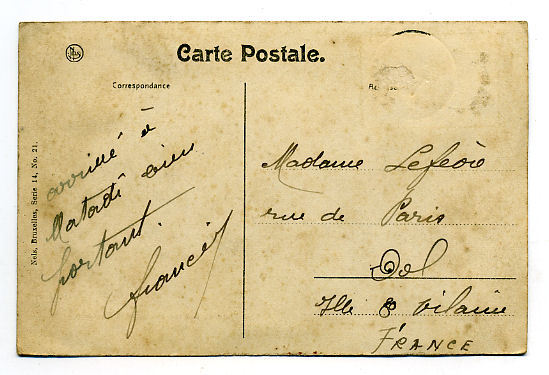 Carte Postale.
Correspondance
Nels, Bruxelles, Serie 14, No. 21.
arrivé à
Matadi bien
portant.
Francis
Madame Lefevre
rue de Paris
Dol
Ille & Vilaine
FRANCE